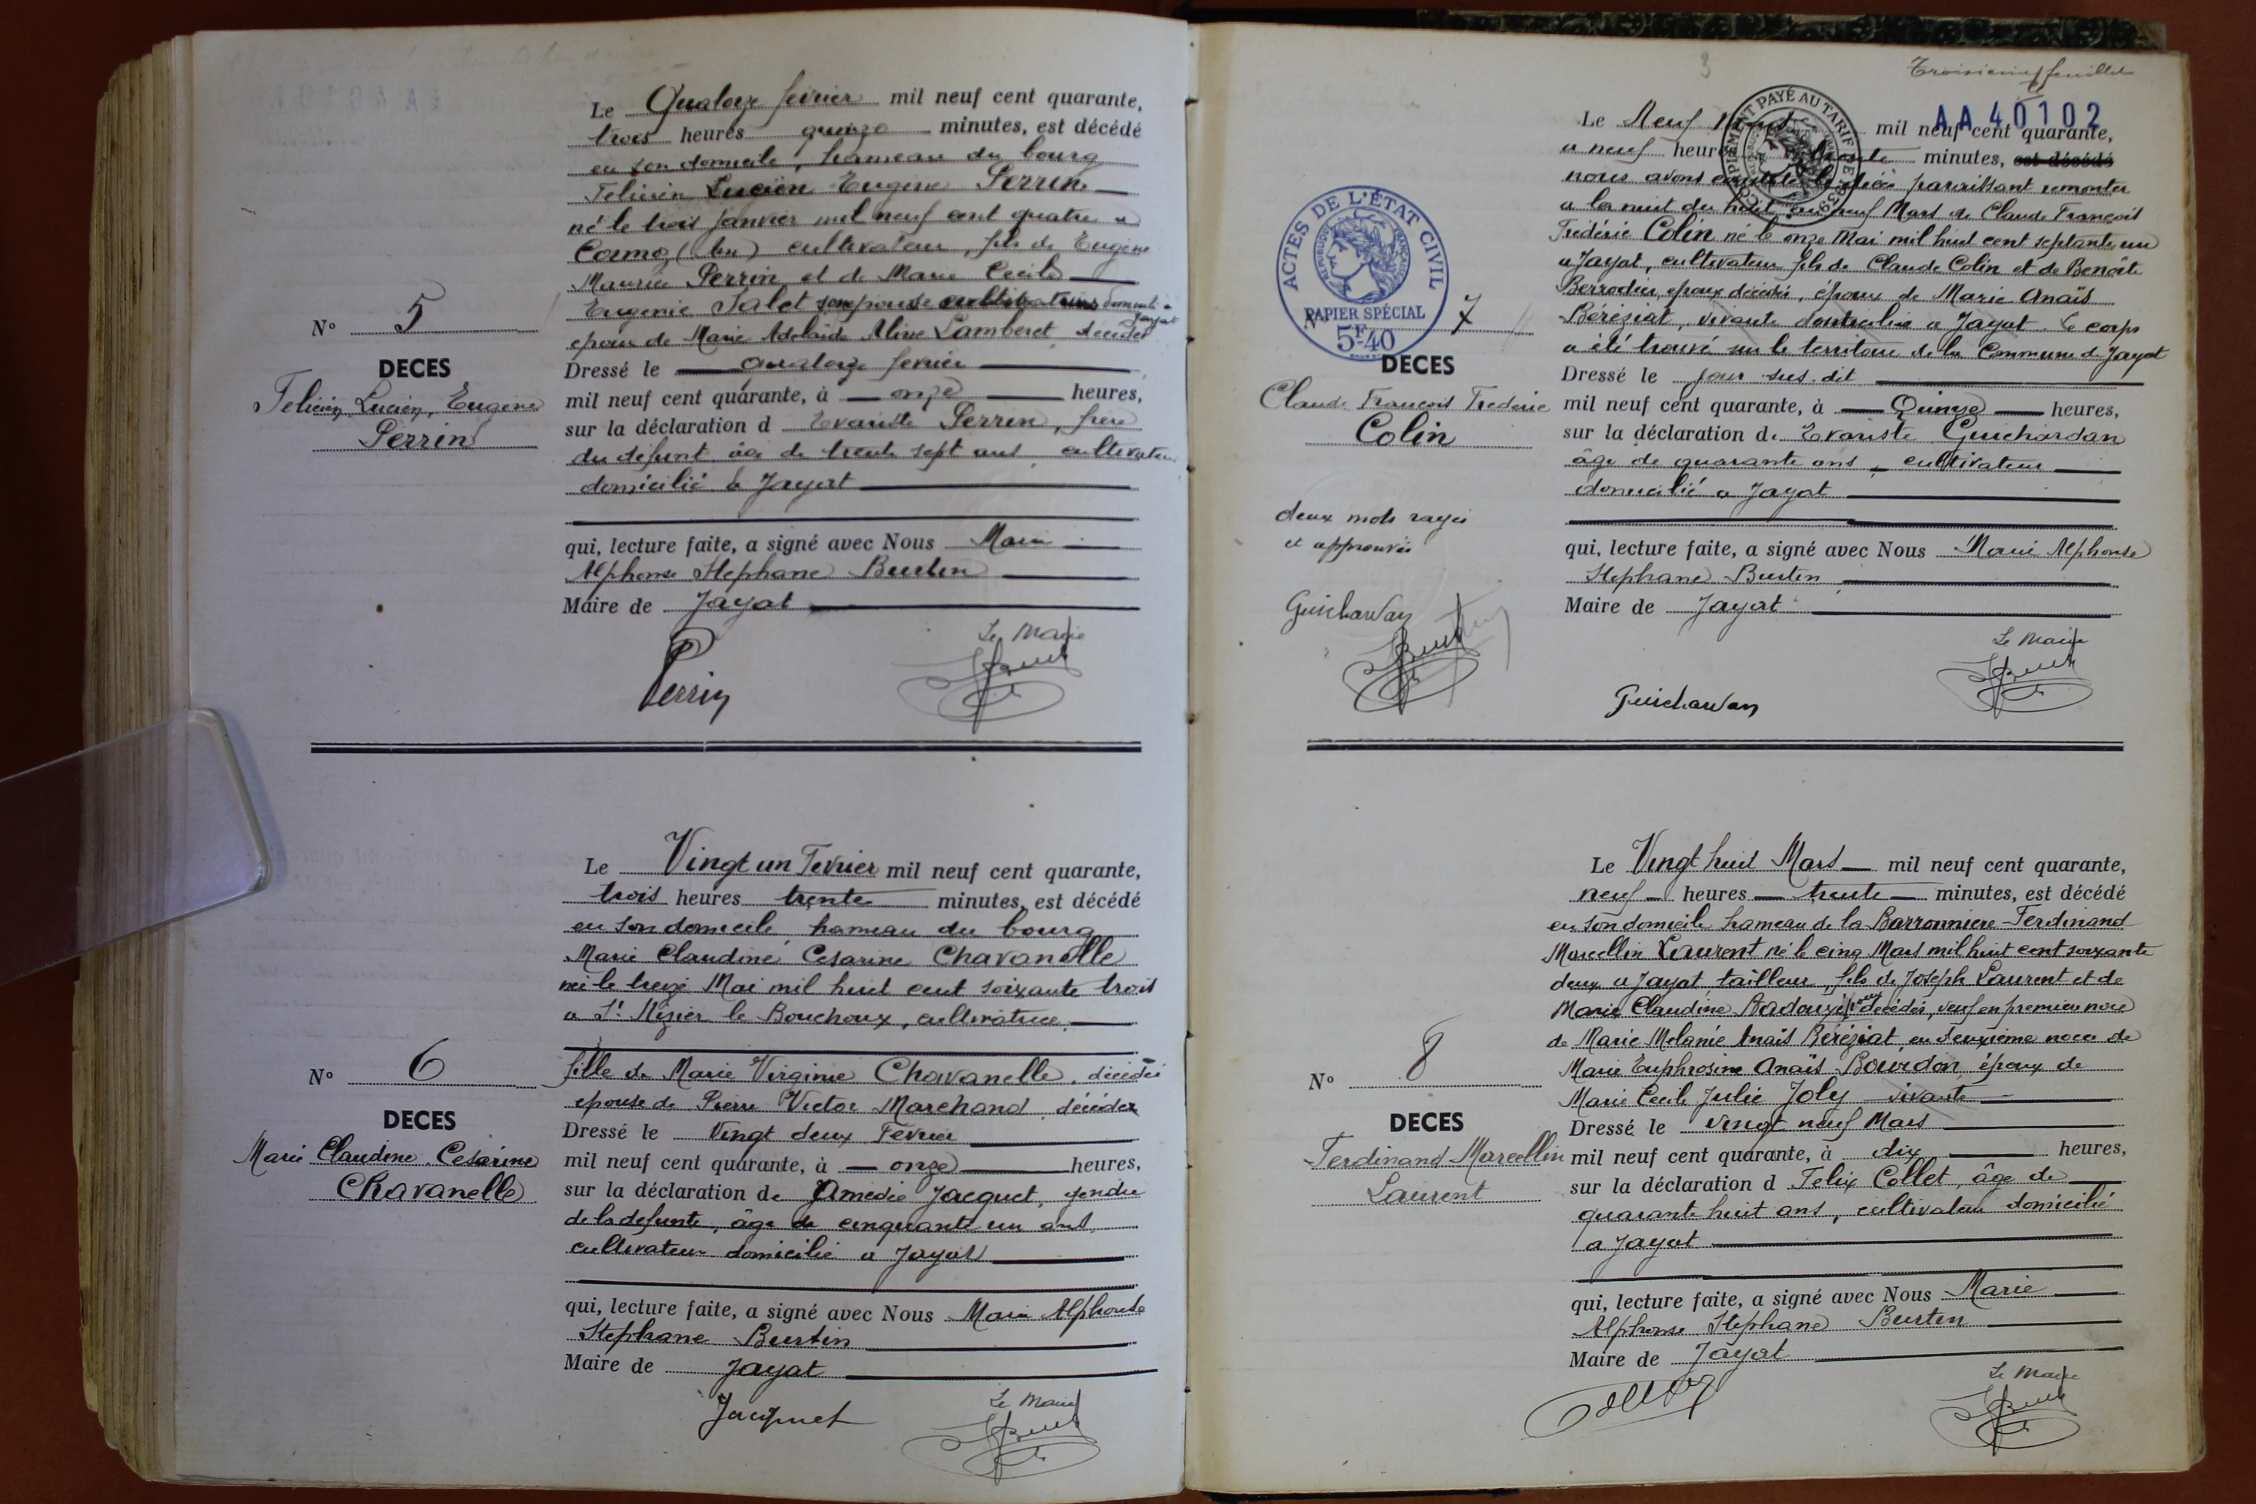 Le Quatorze février mil neuf cent quarante,
trois heures quinze minutes, est décédé
en son domicile, hameau du bourg
Felicien Lucien Eugène Perrin
né le trois janvier mil neuf cent quatre a
Cormoz (Ain) cultivateur, fils de Eugène
Maurice Perrin et de Marie Cecile
Eugenie Jalet son épouse cultivateurs domiciliés à Jayat
epoux de Marie Adelaïde Aline Lamberet, decédée
N° 5
DECES
Felicien, Lucien, Eugène
Perrin
Dressé le quatorze fevrier
mil neuf cent quarante, à onze heures,
sur la déclaration d Evariste Perrin, frère
du défunt âgé de trente sept ans, cultivateur
domicilié à Jayat
qui, lecture faite, a signé avec Nous Marie
Alphonse Stephane Burtin
Maire de Jayat
Le Maire
Perrin
Le Vingt un Fevrier mil neuf cent quarante,
trois heures trente minutes, est décédé
en son domicile, hameau du bourg
Marie Claudine Cesarine Chavanelle
née le treize Mai mil huit cent soixante trois
a St Nizier le Bouchoux, cultivatrice
fille de Marie Virginie Chavanelle, décédée
epouse de Pierre Victor Marchand, décédée
N° 6
DECES
Marie Claudine Cesarine
Chavanelle
Dressé le Vingt deux Fevrier
mil neuf cent quarante, à onze heures,
sur la déclaration de Amédée Jacquet, gendre
de la defunte, âgé de cinquante un ans
cultivateur domicilié a Jayat
qui, lecture faite, a signé avec Nous Marie Alphonse
Stephane Burtin
Maire de Jayat
Jacquet
Le Maire
3
Troisieme feuillet
AA 40102
Le Neuf Mars mil neuf cent quarante,
a neuf heures trente minutes, est décédé
nous avons constaté le décès paraissant remonter
a la nuit du huit au neuf Mars de Claude François
Frédéric Colin né le onze Mai mil huit cent septante un
a Jayat, cultivateur fils de Claude Colin et de Benoîte
Berrodier, epoux décédés, époux de Marie Anaïs
Béréziat, vivante domiciliée a Jayat. Le corps
a été trouvé sur le territoire de la Commune de Jayat
ACTES DE L'ÉTAT CIVIL
RÉPUBLIQUE FRANÇAISE
PAPIER SPÉCIAL
5F40
N° 7
DECES
Claude François Frederic
Colin
Dressé le jour sus-dit
mil neuf cent quarante, à Quinze heures,
sur la déclaration de Evariste Guichardan
âge de quarante ans, cultivateur
domicilié a Jayat
deux mots rayés
et approuvés
Guichardan
qui, lecture faite, a signé avec Nous Marie Alphonse
Stephane Burtin
Maire de Jayat
Le Maire
Guichardan
Le Vingt huit Mars mil neuf cent quarante,
neuf heures trente minutes, est décédé
en son domicile hameau de la Barronniere Ferdinand
Marcellin Laurent né le cinq Mars mil huit cent soixante
deux a Jayat tailleur, fils de Joseph Laurent et de
Marie Claudine Badoux époux décédés, veuf en premiere noce
de Marie Melanie Anaïs Béréziat, en deuxième noce de
Marie Euphrosine Anaïs Bourdon, époux de
Marie Cecile Julie Joly vivante
N° 8
DECES
Ferdinand Marcellin
Laurent
Dressé le vingt neuf Mars
mil neuf cent quarante, à dix heures,
sur la déclaration d Felix Collet, âge de
quarante huit ans, cultivateur domicilié
a Jayat
qui, lecture faite, a signé avec Nous Marie
Alphonse Stephane Burtin
Maire de Jayat
Le Maire